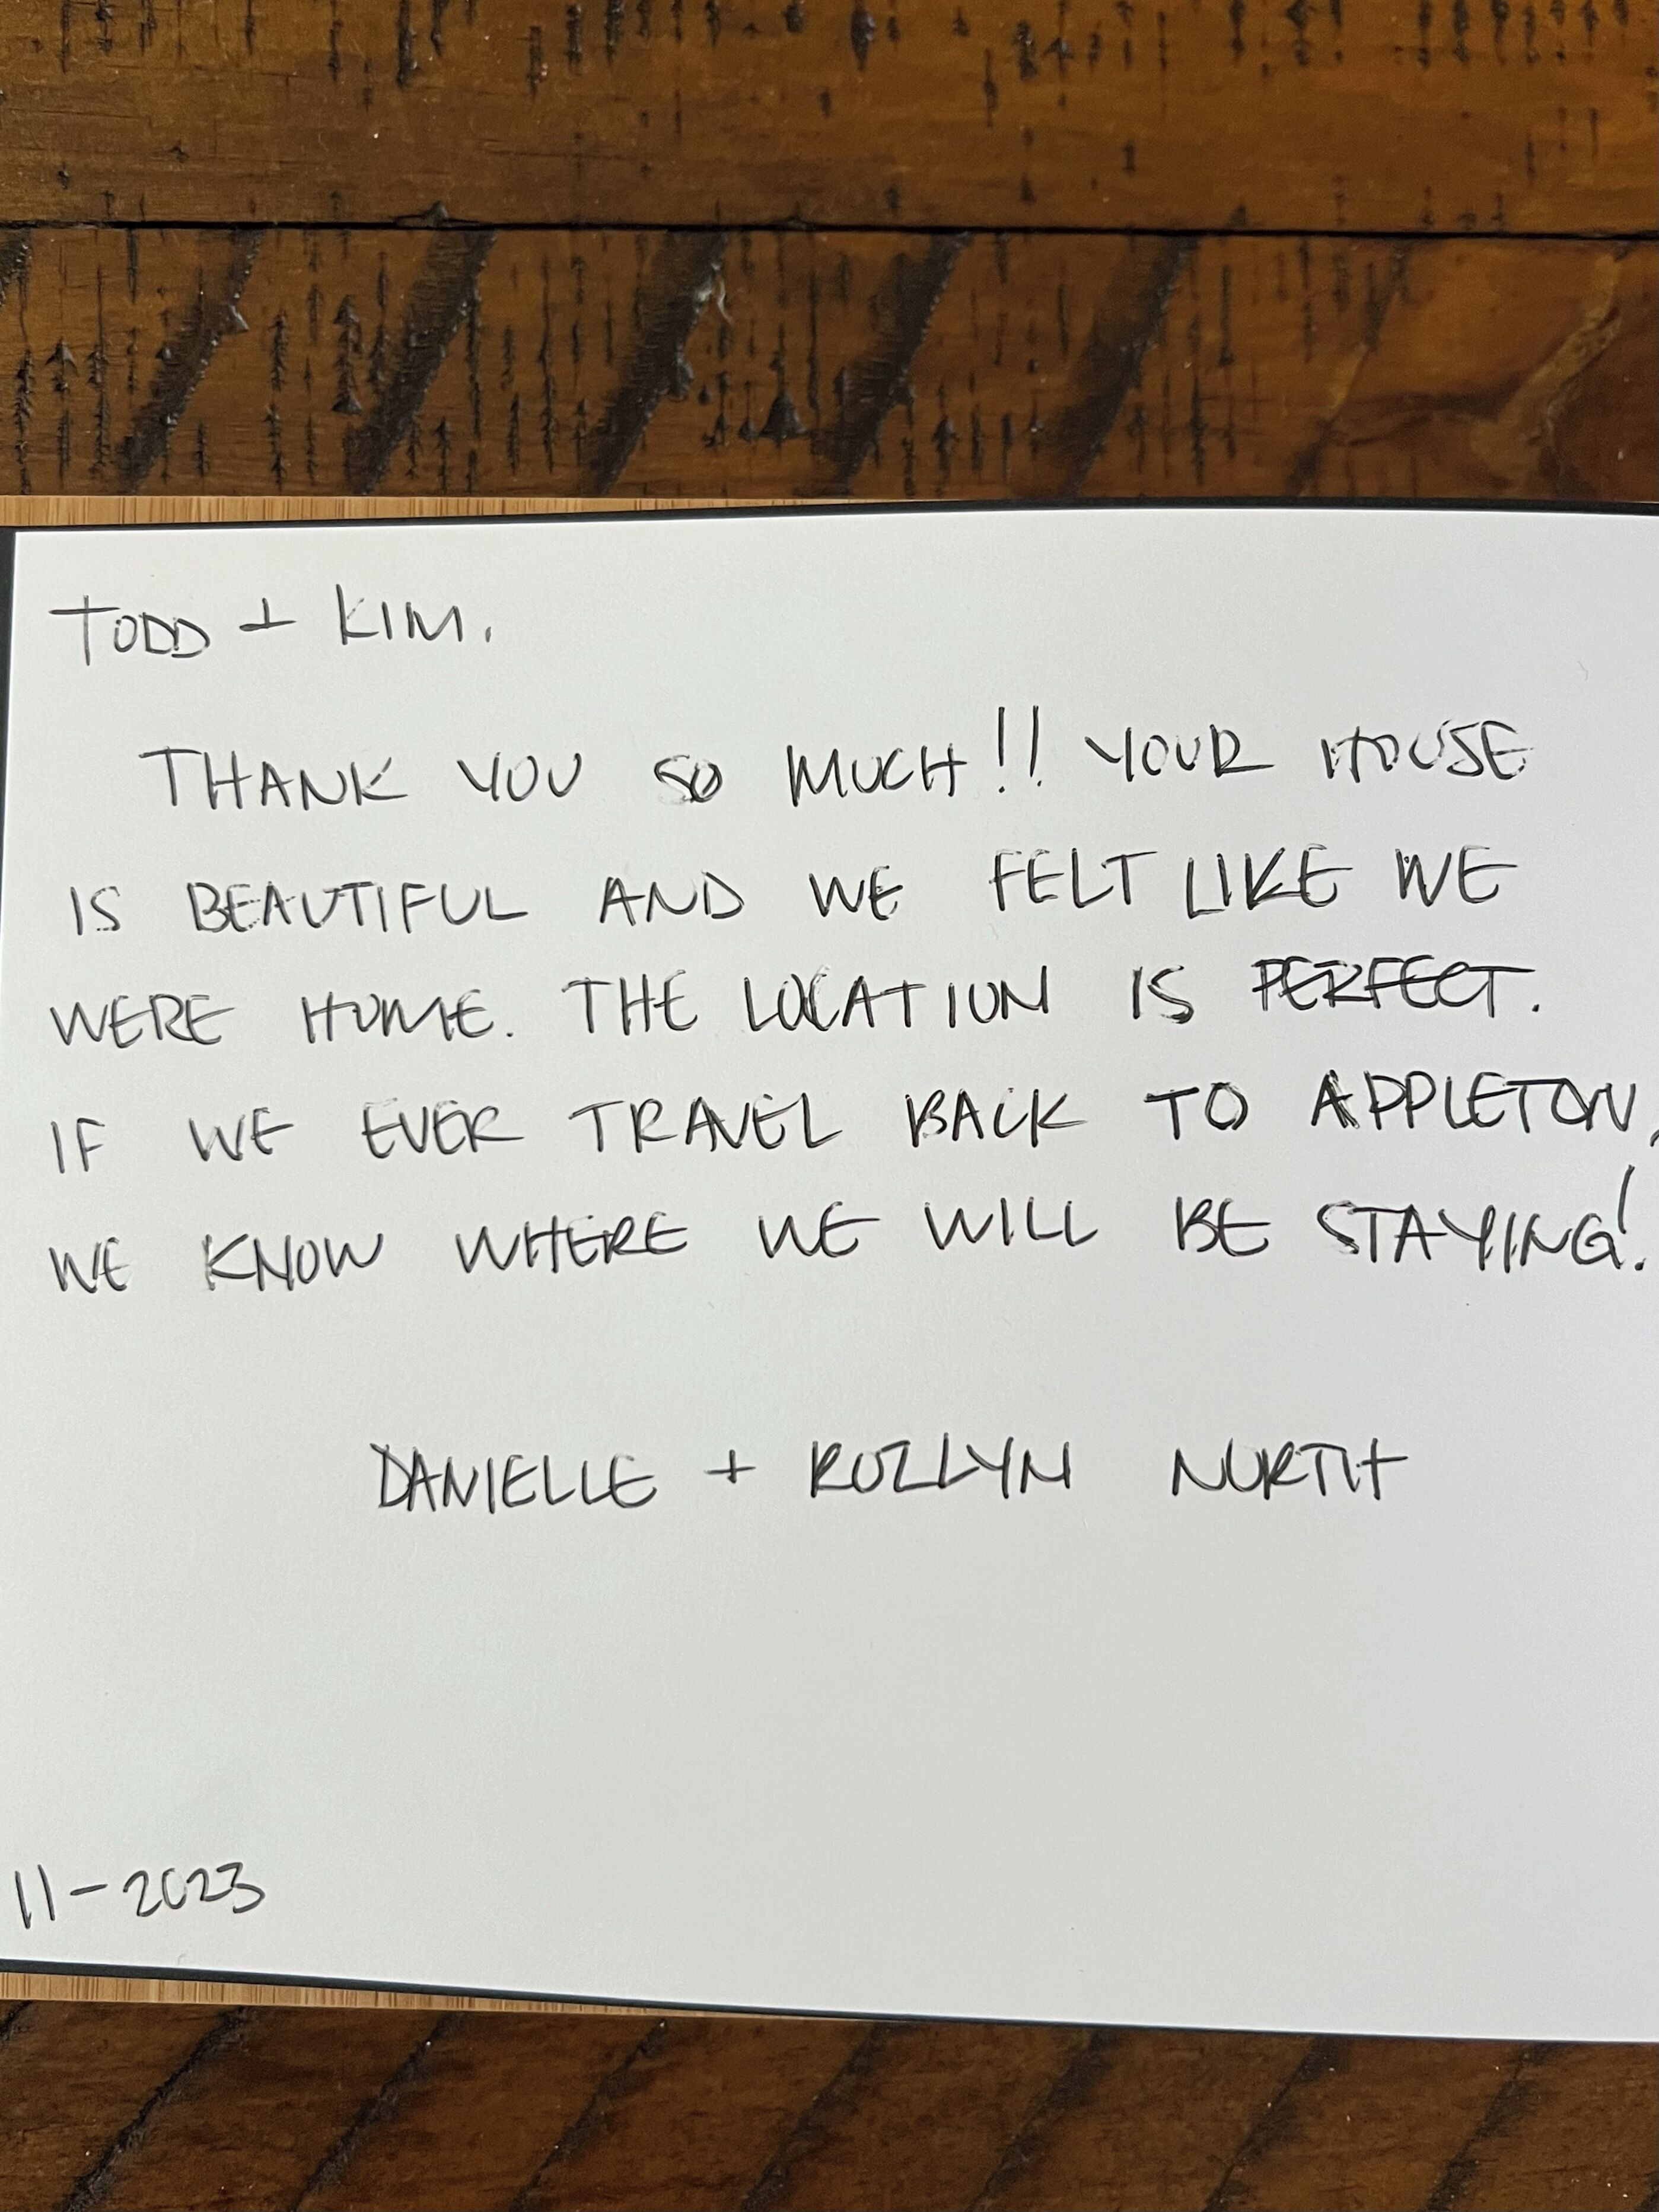 TODD + KIM.
THANK YOU SO MUCH!! YOUR HOUSE
IS BEAUTIFUL AND WE FELT LIKE WE
WERE HOME. THE LOCATION IS PERFECT.
IF WE EVER TRAVEL BACK TO APPLETON,
WE KNOW WHERE WE WILL BE STAYING!
DANIELLE + NORTH
11-2023